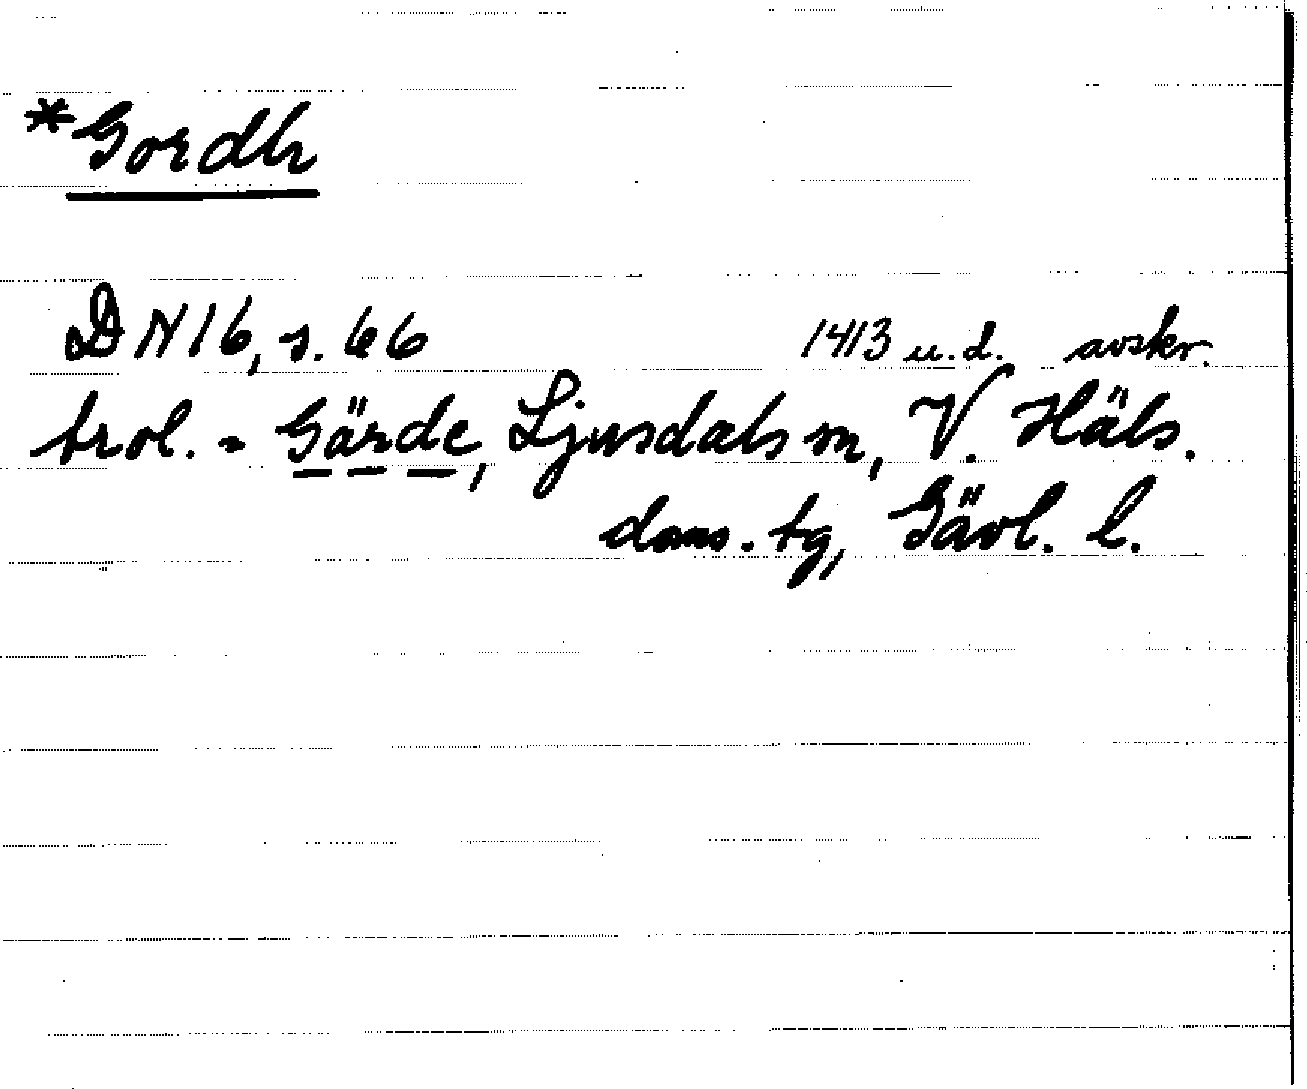 *Gordh
DN 16, s. 66 1413 u.d. avskr.
trol. = Gärde, Ljusdals sn, V. Häls.
doms. tg, Gävl. l.